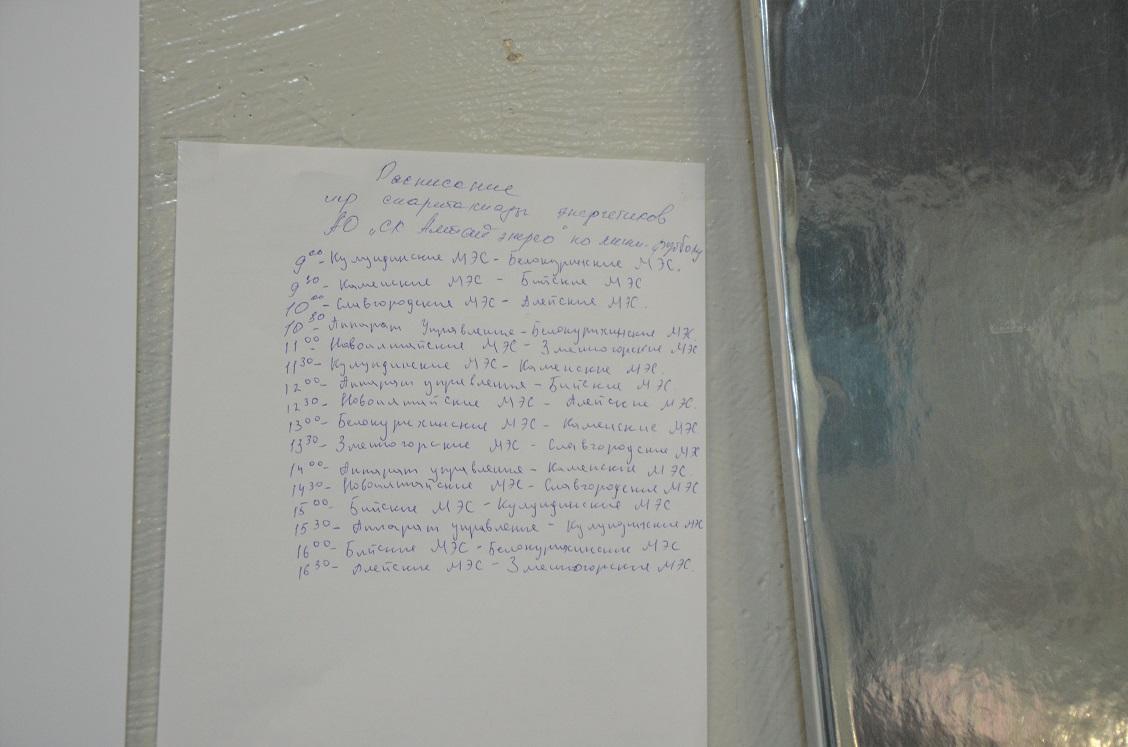 Расписание
игр спартакиады энергетиков
АО „СК Алтайэнерго" по мини-футболу
9⁰⁰- Кулундинские МЭС - Белокурихинские МЭС.
9³⁰- Каменские МЭС - Бийские МЭС
10⁰⁰- Славгородские МЭС - Алейские МЭС.
10³⁰- Аппарат Управления - Белокурихинские МЭС
11⁰⁰- Новоалтайские МЭС - Змеиногорские МЭС
11³⁰- Кулундинские МЭС - Каменские МЭС.
12⁰⁰- Аппарат управления - Бийские МЭС.
12³⁰- Новоалтайские МЭС - Алейские МЭС.
13⁰⁰- Белокурихинские МЭС - Каменские МЭС
13³⁰- Змеиногорские МЭС - Славгородские МЭС
14⁰⁰- Аппарат управления - Каменские МЭС.
14³⁰- Новоалтайские МЭС - Славгородские МЭС
15⁰⁰- Бийские МЭС - Кулундинские МЭС
15³⁰- Аппарат управления - Кулундинские МЭС
16⁰⁰- Бийские МЭС - Белокурихинские МЭС
16³⁰- Алейские МЭС - Змеиногорские МЭС.